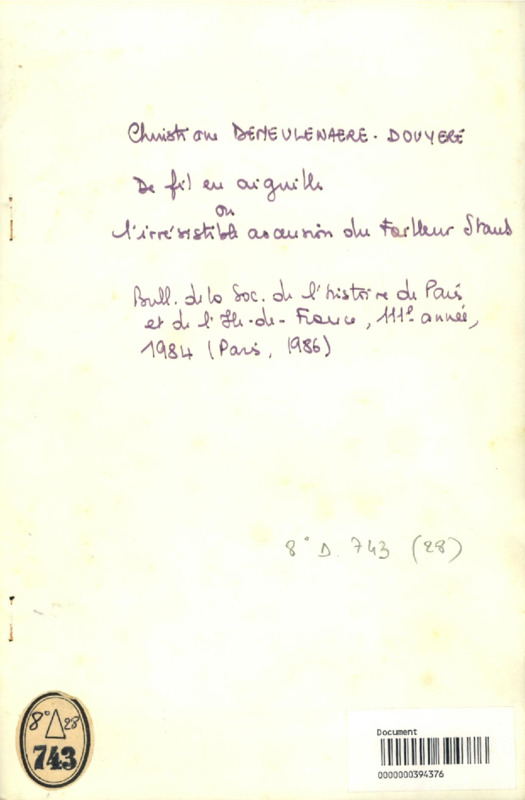 Christiane DEMEULENAERE-DOUYERE
De fil en aiguille
ou
l'irrésistible ascension du tailleur Staub
Bull. de la Soc. de l'histoire de Paris
et de l'Ile-de-France, 111e année,
1984 (Paris, 1986)
8° D. 743 (28)
8° Δ 28
743
Document
0000000394376